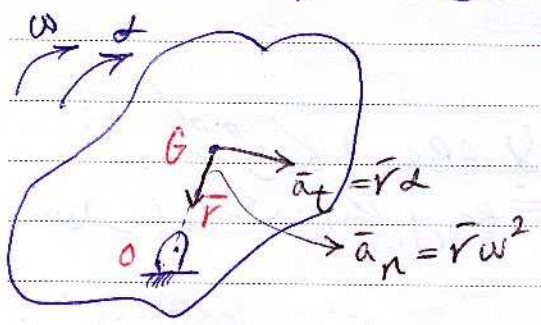 ω α
G
ā_t = r̄α
r̄
O
ā_n = r̄ω²